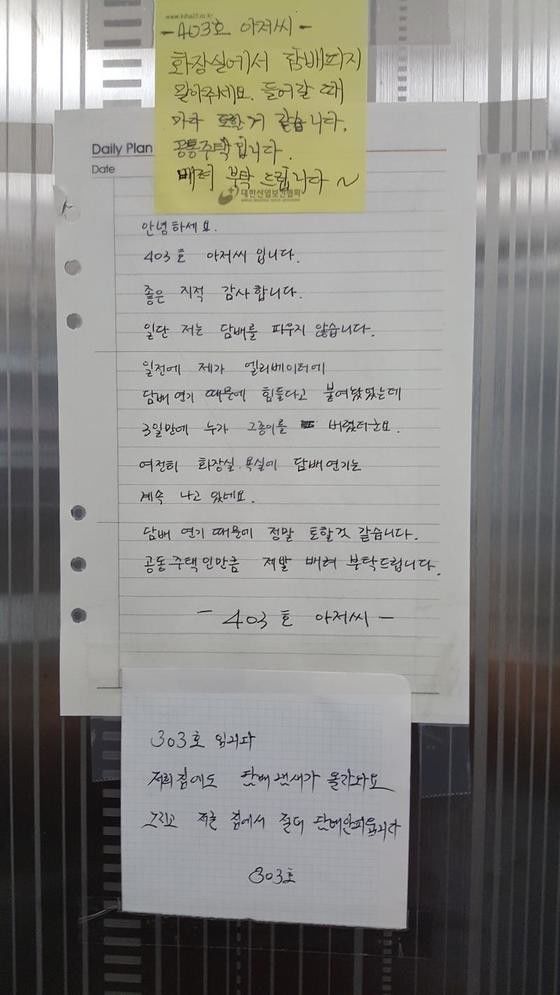 www.kiha21.or.kr
-403호 아저씨-
화장실에서 담배피지
말아주세요. 들어갈 때
마다 토할 거 같습니다.
공동주택입니다.
배려 부탁 드립니다 ~
대한산업보건협회
Daily Plan
Date
안녕하세요.
403호 아저씨 입니다.
좋은 지적 감사합니다.
일단 저는 담배를 피우지 않습니다.
일전에 제가 엘리베이터에
담배연기 때문에 힘들다고 붙여놨었는데
3일만에 누가 그종이를 버렸더군요.
여전히 화장실.욕실에 담배연기는
계속 나고 있네요.
담배 연기 때문에 정말 토할것 같습니다.
공동주택인만큼 제발 배려 부탁드립니다.
- 403호 아저씨 -
303호 입니다
저희집에도 담배 냄새가 올라와요
그리고 저흰 집에서 절대 담배안피웁니다
303호